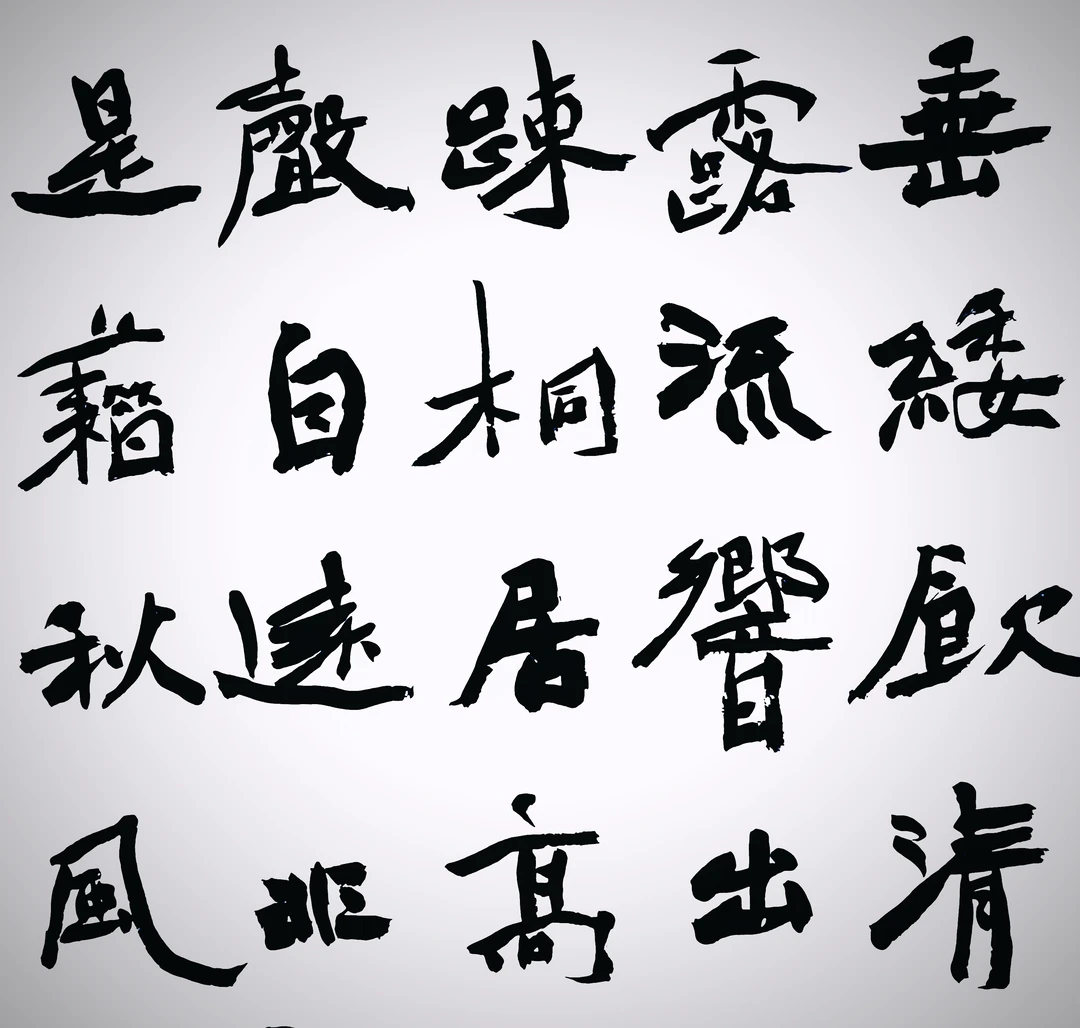 垂緌飲清
露流響出
踈桐居高
聲自遠非
是藉秋風